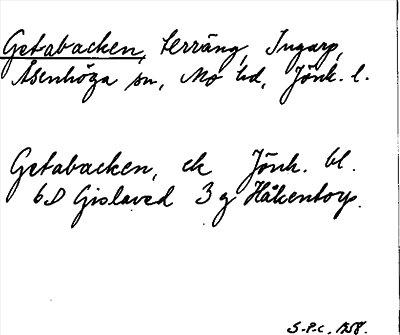 Getabacken, terräng, Ingarp,
Åsenhöga sn, Mo hd, Jönk. l.
Getabacken, ek Jönk. bl.
6D Gislaved 3 g Håkentorp.
S.P.C. 1958.